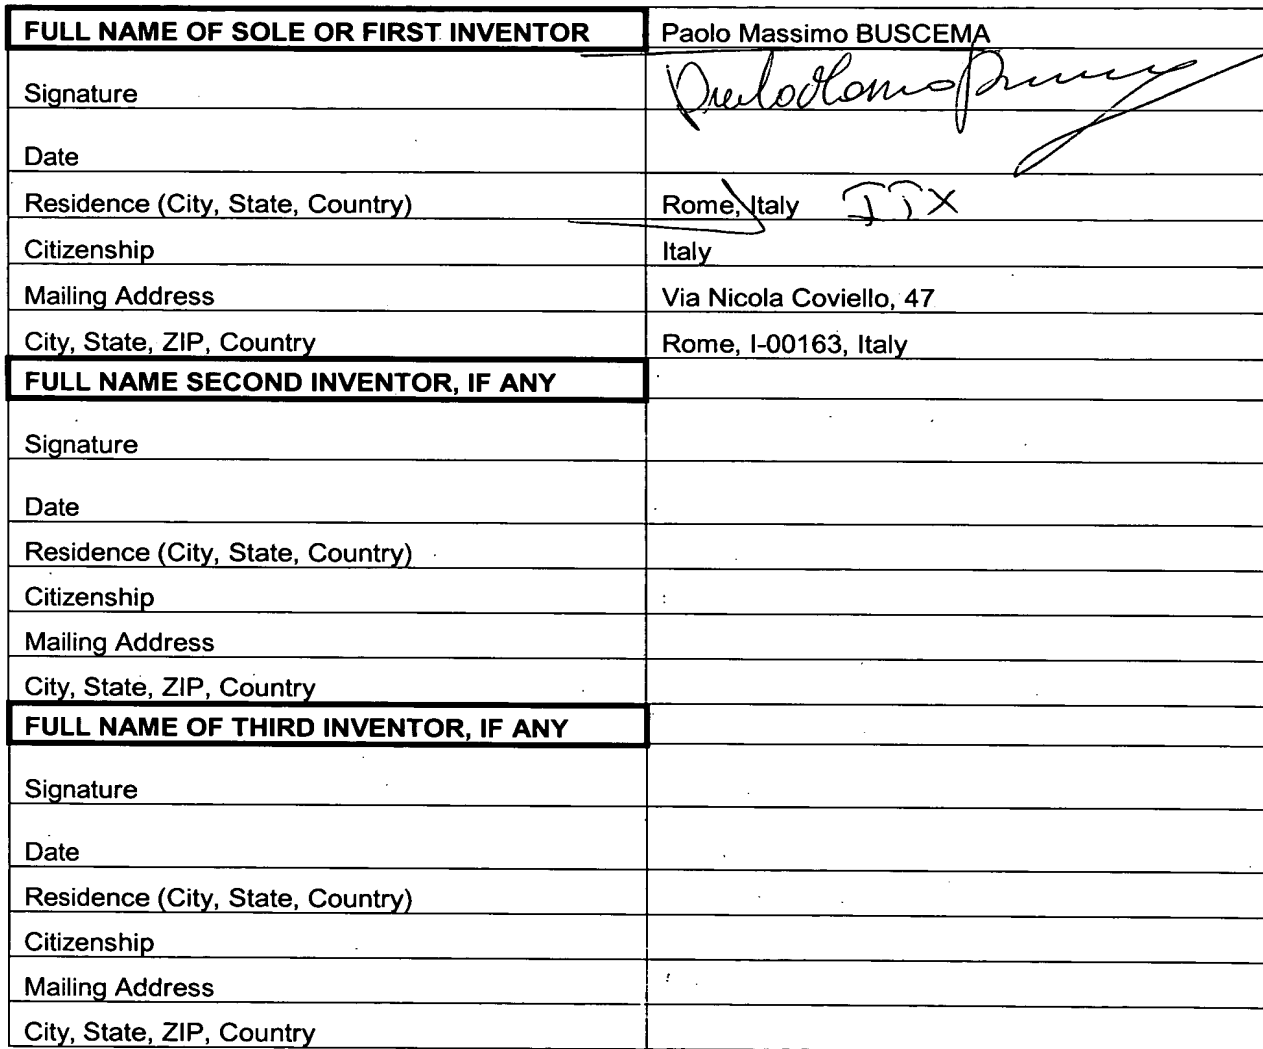 FULL NAME OF SOLE OR FIRST INVENTOR Paolo Massimo BUSCEMA
Signature Paolo Massimo Buscema
Date
Residence (City, State, Country) Rome, Italy ITX
Citizenship Italy
Mailing Address Via Nicola Coviello, 47
City, State, ZIP, Country Rome, I-00163, Italy
FULL NAME SECOND INVENTOR, IF ANY
Signature
Date
Residence (City, State, Country)
Citizenship
Mailing Address
City, State, ZIP, Country
FULL NAME OF THIRD INVENTOR, IF ANY
Signature
Date
Residence (City, State, Country)
Citizenship
Mailing Address
City, State, ZIP, Country